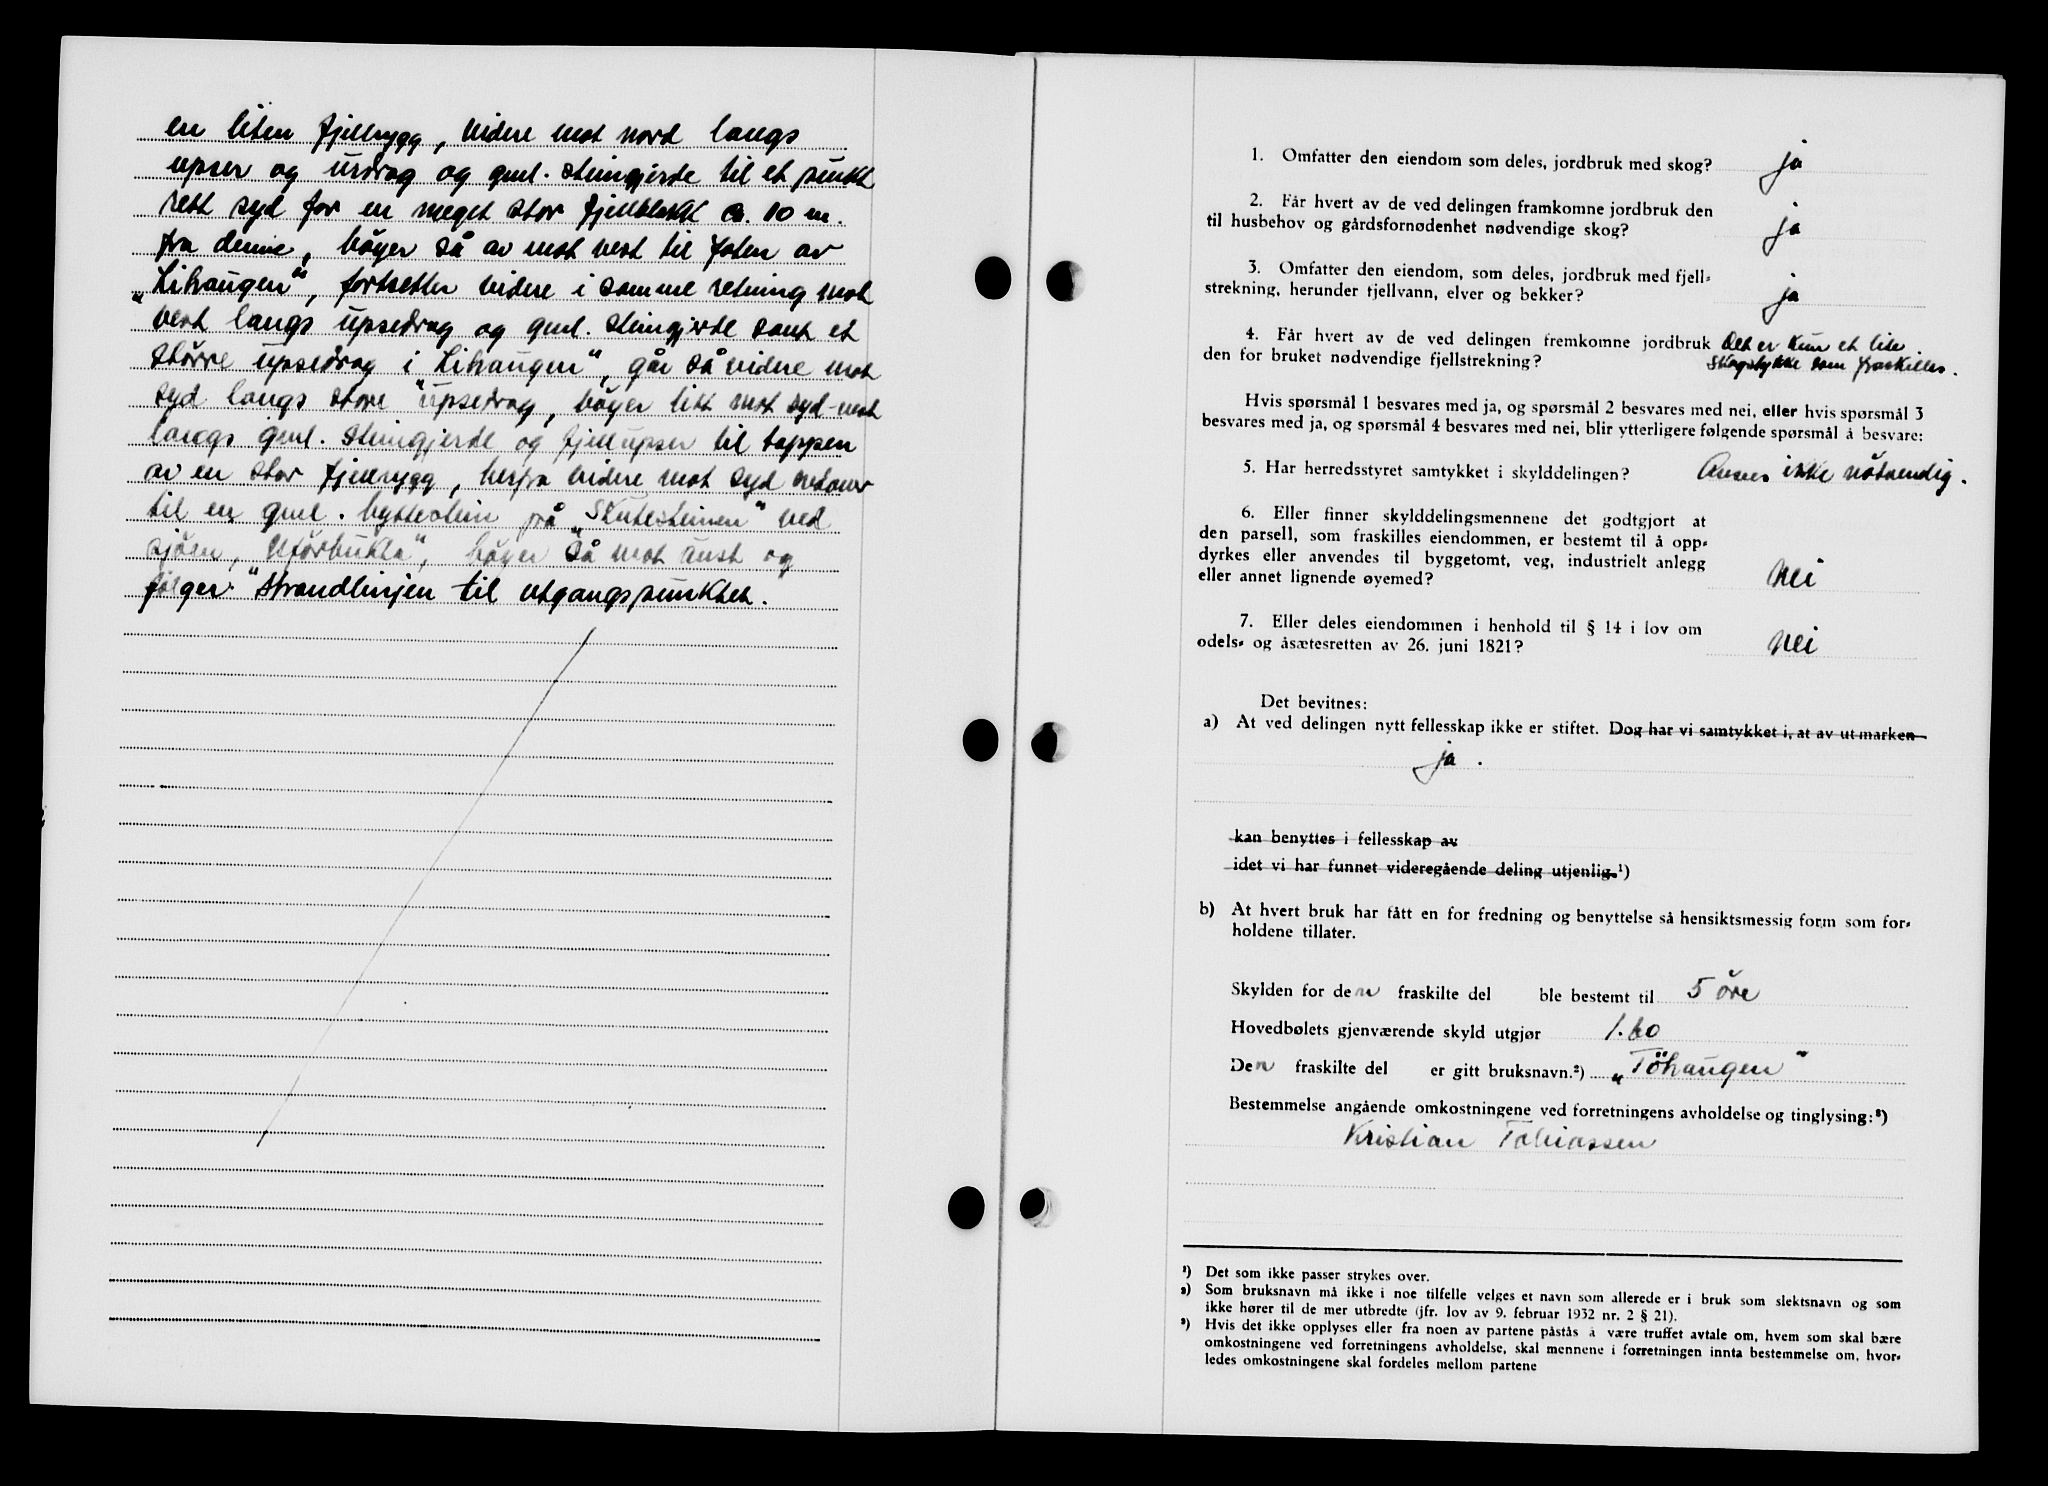 en liten fjellrygg, videre mot nord langs
upser og urdrag og gml. steingjerde til et punkt
rett syd for en meget stor fjellblokk ca. 10 m.
fra denne, böyer så av mot vest til foten av
„Lihaugen“, fortsetter videre i samme retning mot
vest langs upsedrag og gml. steingjerde samt et
större upsedrag i „Lihaugen“, går så videre mot
syd langs store upsedrag, böyer litt mot syd-vest
langs gml. steingjerde og fjellupser til toppen
av en stor fjellrygg, herfra videre mot syd nedover
til en gml. byttestein på „Skutesteinen“ ved
sjöen, böyer så mot aust og
fölger strandlinjen til utgangspunktet.
1. Omfatter den eiendom som deles, jordbruk med skog? ja
2. Får hvert av de ved delingen framkomne jordbruk den
til husbehov og gårdsfornødenhet nødvendige skog? ja
3. Omfatter den eiendom, som deles, jordbruk med fjell-
strekning, herunder fjellvann, elver og bekker? ja
4. Får hvert av de ved delingen fremkomne jordbruk Det er kun et lite
den for bruket nødvendige fjellstrekning? skogstykke som fraskilles.
Hvis spørsmål 1 besvares med ja, og spørsmål 2 besvares med nei, eller hvis spørsmål 3
besvares med ja, og spørsmål 4 besvares med nei, blir ytterligere følgende spørsmål å besvare:
5. Har herredsstyret samtykket i skylddelingen? Anses ikke nötvendig.
6. Eller finner skylddelingsmennene det godtgjort at
den parsell, som fraskilles eiendommen, er bestemt til å opp-
dyrkes eller anvendes til byggetomt, veg, industrielt anlegg
eller annet lignende øyemed? Nei
7. Eller deles eiendommen i henhold til § 14 i lov om
odels- og åsætesretten av 26. juni 1821? Nei
Det bevitnes:
a) At ved delingen nytt fellesskap ikke er stiftet. Dog har vi samtykket i, at av utmarken
ja.
kan benyttes i fellesskap av
idet vi har funnet videregående deling utjenlig.¹)
b) At hvert bruk har fått en for fredning og benyttelse så hensiktsmessig form som for-
holdene tillater.
Skylden for den fraskilte del ble bestemt til 5 öre
Hovedbølets gjenværende skyld utgjør 1.60
Den fraskilte del er gitt bruksnavn.²) „Töhaugen“
Bestemmelse angående omkostningene ved forretningens avholdelse og tinglysing:³)
Kristian Tobiassen
¹) Det som ikke passer strykes over.
²) Som bruksnavn må ikke i noe tilfelle velges et navn som allerede er i bruk som slektsnavn og som
ikke hører til de mer utbredte (jfr. lov av 9. februar 1932 nr. 2 § 21).
³) Hvis det ikke opplyses eller fra noen av partene påstås å være truffet avtale om, hvem som skal bære
omkostningene ved forretningens avholdelse, skal mennene i forretningen innta bestemmelse om, hvor-
ledes omkostningene skal fordeles mellom partene